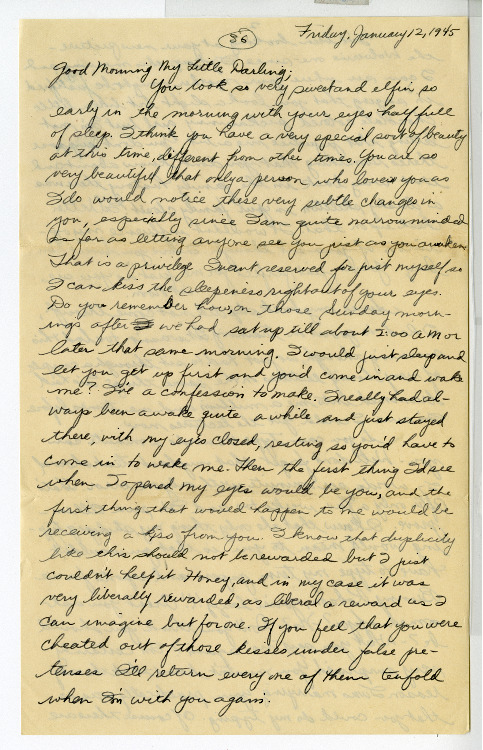 56
Friday, January 12, 1945
Good Morning My Little Darling;
You look so very sweet and elfin so
early in the morning with your eyes half full
of sleep. I think you have a very special sort of beauty
at this time, different from other times. You are so
very beautiful that only a person who loves you as
I do would notice these very subtle changes in
you, especially since I am quite narrowminded
as far as letting anyone see you just as you awaken.
That is a privilege I want reserved for just myself so
I can kiss the sleepeness right out of your eyes.
Do you remember how, on those Sunday morn-
ings after we had sat up till about 2:00 AM or
later that same morning. I would just sleep and
let you get up first and you'd come in and wake
me? I've a confession to make. I really had al-
ways been awake quite a while and just stayed
there, with my eyes closed, resting so you'd have to
come in to wake me. Then the first thing I'd see
when I opened my eyes would be you, and the
first thing that would happen to me would be
receiving a kiss from you. I know that duplicity
like this should not be rewarded but I just
couldn't help it Honey, and in my case it was
very liberally rewarded, as liberal a reward as I
can imagine but for one. If you feel that you were
cheated out of those kisses under false pre-
tenses I'll return every one of them tenfold
when I'm with you again.